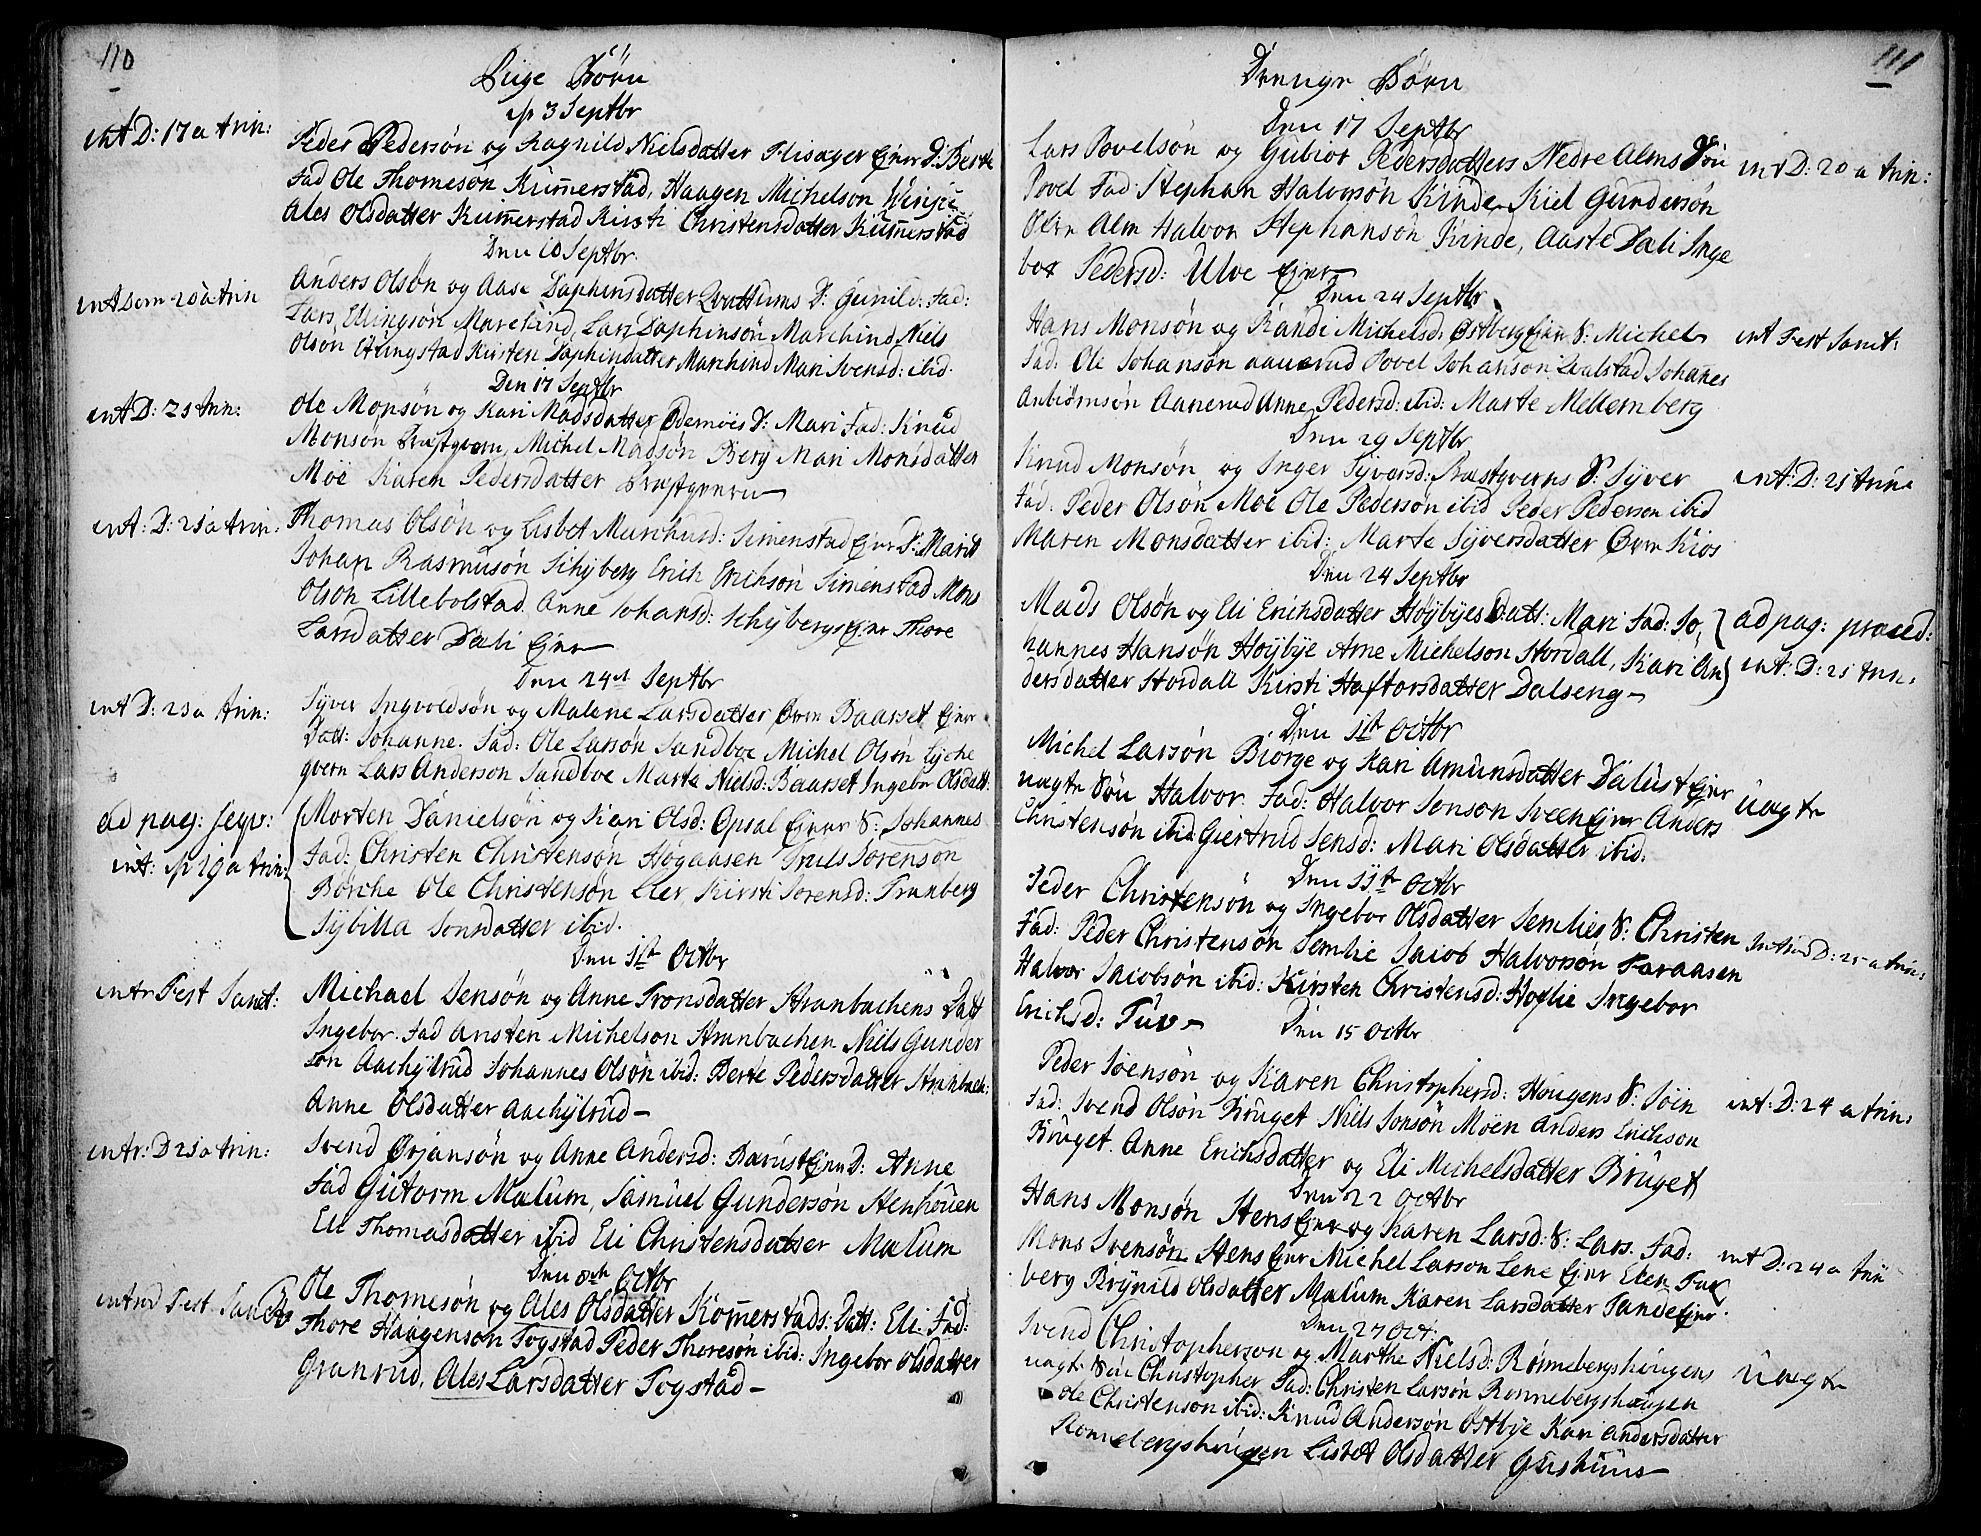 110
Pige Børn
p 3 Septbr
int D: 17 a trin:
Peder Pedersøn og Ragnild Nielsdatter Flisager Ejer D: Berte
Fad Ole Thomesøn Kummerstad, Haagen Michelson
Ales Olsdatter Kummerstad Kirsti Christensdatter Kummerstad
Den 10 Septbr
int Dom 20 a trin
Anders Olsøn og Aase Daphinsdatter Qvattums D: Gunild: Fad:
Lars Ellingsøn Marchind, Lars Daphinsøn Marchind Niels
Olson Ettingstad Kirsten Daphindatter Marchind Mari Svensd: ibid.
Den 17 Septbr
int D: 21 trin:
Ole Monsøn og Kari Madsdatter Ødemoes D: Mari Fad: Knud
Monsøn Præstgvern, Michel Madsøn Berg Mari Monsdatter
Moe Karen Pedersdatter Præstgvern
int: D: 21 a trin:
Thomas Olsøn og Lisbet Murchusd: Simenstad Ejer D: Marit
Johan Rasmusøn Schyberg Erich Erichsøn Simenstad Mons
Olsøn Lillebolstad. Anne Johansd: Schybergs Ejer Thore
Larsdatter Dæli Ejer
Den 24de Septbr
int D: 23 a trin:
Syver Ingvoldsøn og Malene Larsdatter Øvre Baarset Ejer
Datt: Johanne. Fad: Ole Larsøn Sandboe Michel Olsøn Lyche
gvern Lars Anderson Sandboe Marte Nielsd: Baarset Ingebor Olsdatt:
ad pag: seqv:
Morten Danielsøn og Kari Olsd: Opsal Ejer S: Johannes
int: p 19 a trin:
Fad: Christen Christensøn Høgaasen Truls Sørenson
Børche Ole Christensøn Eler Kirsti Sorensd: Tranberg
Sybilla Jonsdatter ibid.
Den 1st Octbr
intr Fest Sanct:
Michael Jensøn og Anne Tronsdatter Stranbachens Datt
Ingebor. Fad Arsten Michelson Stranbachen Niels Gunder
son Aachylrud Johannes Olsøn ibid: Berte Pedersdatter Stranbach:
Anne Olsdatter Aachylrud
intr: D 21 a trin:
Svend Ørjansøn og Anne Andersd: Bærust Ejer D: Anne
Fad Gutorm Mælum, Samuel Gundersøn Stenhouen
Eli Thomasdatter ibid Eli Christensdatter Mælum
Den 8de Octbr
intrd Fest. Sanct
Ole Thomesøn og Ales Olsdatter Kommerstads: Datt: Eli. Fad:
Thore Haagenson Togstad Peder Thoresøn ibid: Ingebor Olsdatter
Granrud, Ales Larsdatter Togstad
111
Drenge Børn
Den 17 Septbr
Lars Povelsøn og Gubiør Pedersdatters Nedre Alms Søn
int D: 20 a trin:
Povel Fad: Stephan Halvorsøn Kinde Kiel Gundersøn
Øvre Alm Halvor Stephansøn Kinde, Aaste Dæli Inge
bor Pedersd: Ulve Ejer
Den 24 Septbr
Hans Monsøn og Randi Michelsd: Østberg Ejer S: Michel
int Fest Sanct:
Fad: Ole Johansøn Aanerud Povel Johanson Qvalstad Johanes
Anbiørnsøn Aanerud Anne Pedersd: ibid: Marte Mellemberg
Den 29 Septbr
Knud Monsøn og Inger Syversd: Præstgverns S: Syver
int: D: 21 trin:
Fad: Peder Olsøn Moe Ole Pedersøn ibid Peder Pederson ibid
Maren Monsdatter ibid: Marte Syversdatter Øvre Kios
Den 24 Septbr
Mads Olsøn og Eli Erichsdatter Høybyes Datt: Mari Fad: Jo,
ad pag: præced:
hannes Hansøn Høybye Arne Michelson Stordall, Kari An
int: D: 21 trin:
dersdatter Stordall Kirsti Haftorsdatter Dalseng
Den 1st Octbr
Michel Larsøn Biørge og Kari Amundsdatter Dalust Ejer
uægte Søn Halvor. Fad: Halvor Jonson Sveen Ejer Anders
uægte
Christensøn ibid Giertrud Jensd: Mari Olsdatter ibid.
Den 11te Octbr
Peder Christensøn og Ingebor Olsdatter Semlies S: Christen
Fad: Peder Christensøn Semlie Jacob Halvorsøn Faraasen
Intrd D: 21 a trin:
Halvor Jacobsøn ibid: Kirsten Christensd: Høflie Ingebor
Erichsd: Tuv
Den 15 Octbr
Peder Joensøn og Karen Christophersd: Hougens S: Joen
int: D: 24 a trin:
Fad: Svend Olsøn Bruget Niels Jonsøn Moen Anders Erichson
Bruget. Anne Erichsdatter og Eli Michelsdatter Bruget
Den 22 Octbr
Hans Monsøn Stens Ejer og Karen Larsd: S: Lars. Fad:
int D: 24 a trin
Mons Svensøn Stens Ejer Michel Larson Lene Ejer Elen Fax
berg Brynild Olsdatter Mælum Karen Larsdatter Tande Ejer.
Den 27 Oct:
Svend Christopherson og Marthe Nielsd: Rønnebergshougens
uægte Søn Christopher Fad: Christen Larsøn Ronnebergshaugen
uægte
Ole Christenson ibid: Knud Andersøn Østbye Kari Andersdatter
Ronnebergshougen Lisbet Olsdatter Gushuus